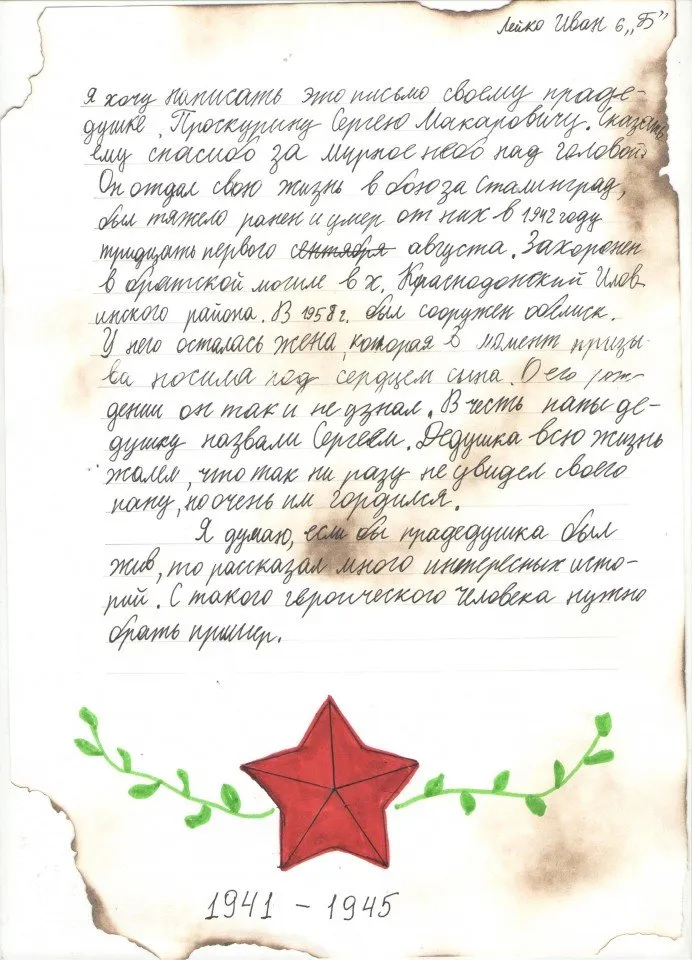 Лейко Иван 6 „Б”
Я хочу написать это письмо своему праде-
душке, Проскурину Сергею Макаровичу. Сказать
ему спасибо за мирное небо над головой.
Он отдал свою жизнь в бою за Сталинград,
был тяжело ранен и умер от них в 1942 году
тридцать первого сентября августа. Захоронен
в братской могиле в х. Краснодонский Илов-
инского района. В 1958 г. был сооружен обелиск.
У него осталась жена, которая в момент призы-
ва носила под сердцем сына. О его рож-
дении он так и не узнал. В честь папы де-
душку назвали Сергеем. Дедушка всю жизнь
жалел, что так ни разу не увидел своего
папу, но очень им гордился.
Я думаю, если бы прадедушка был
жив, то рассказал много интересных исто-
рий. С такого героического человека нужно
брать пример.
1941 - 1945